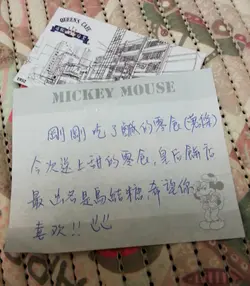 QUEEN'S CAFE
MICKEY MOUSE
剛剛吃了鹹的零食
今次送上甜的零食,皇后飯店
最出名是鳥結糖,希望你
喜歡!!